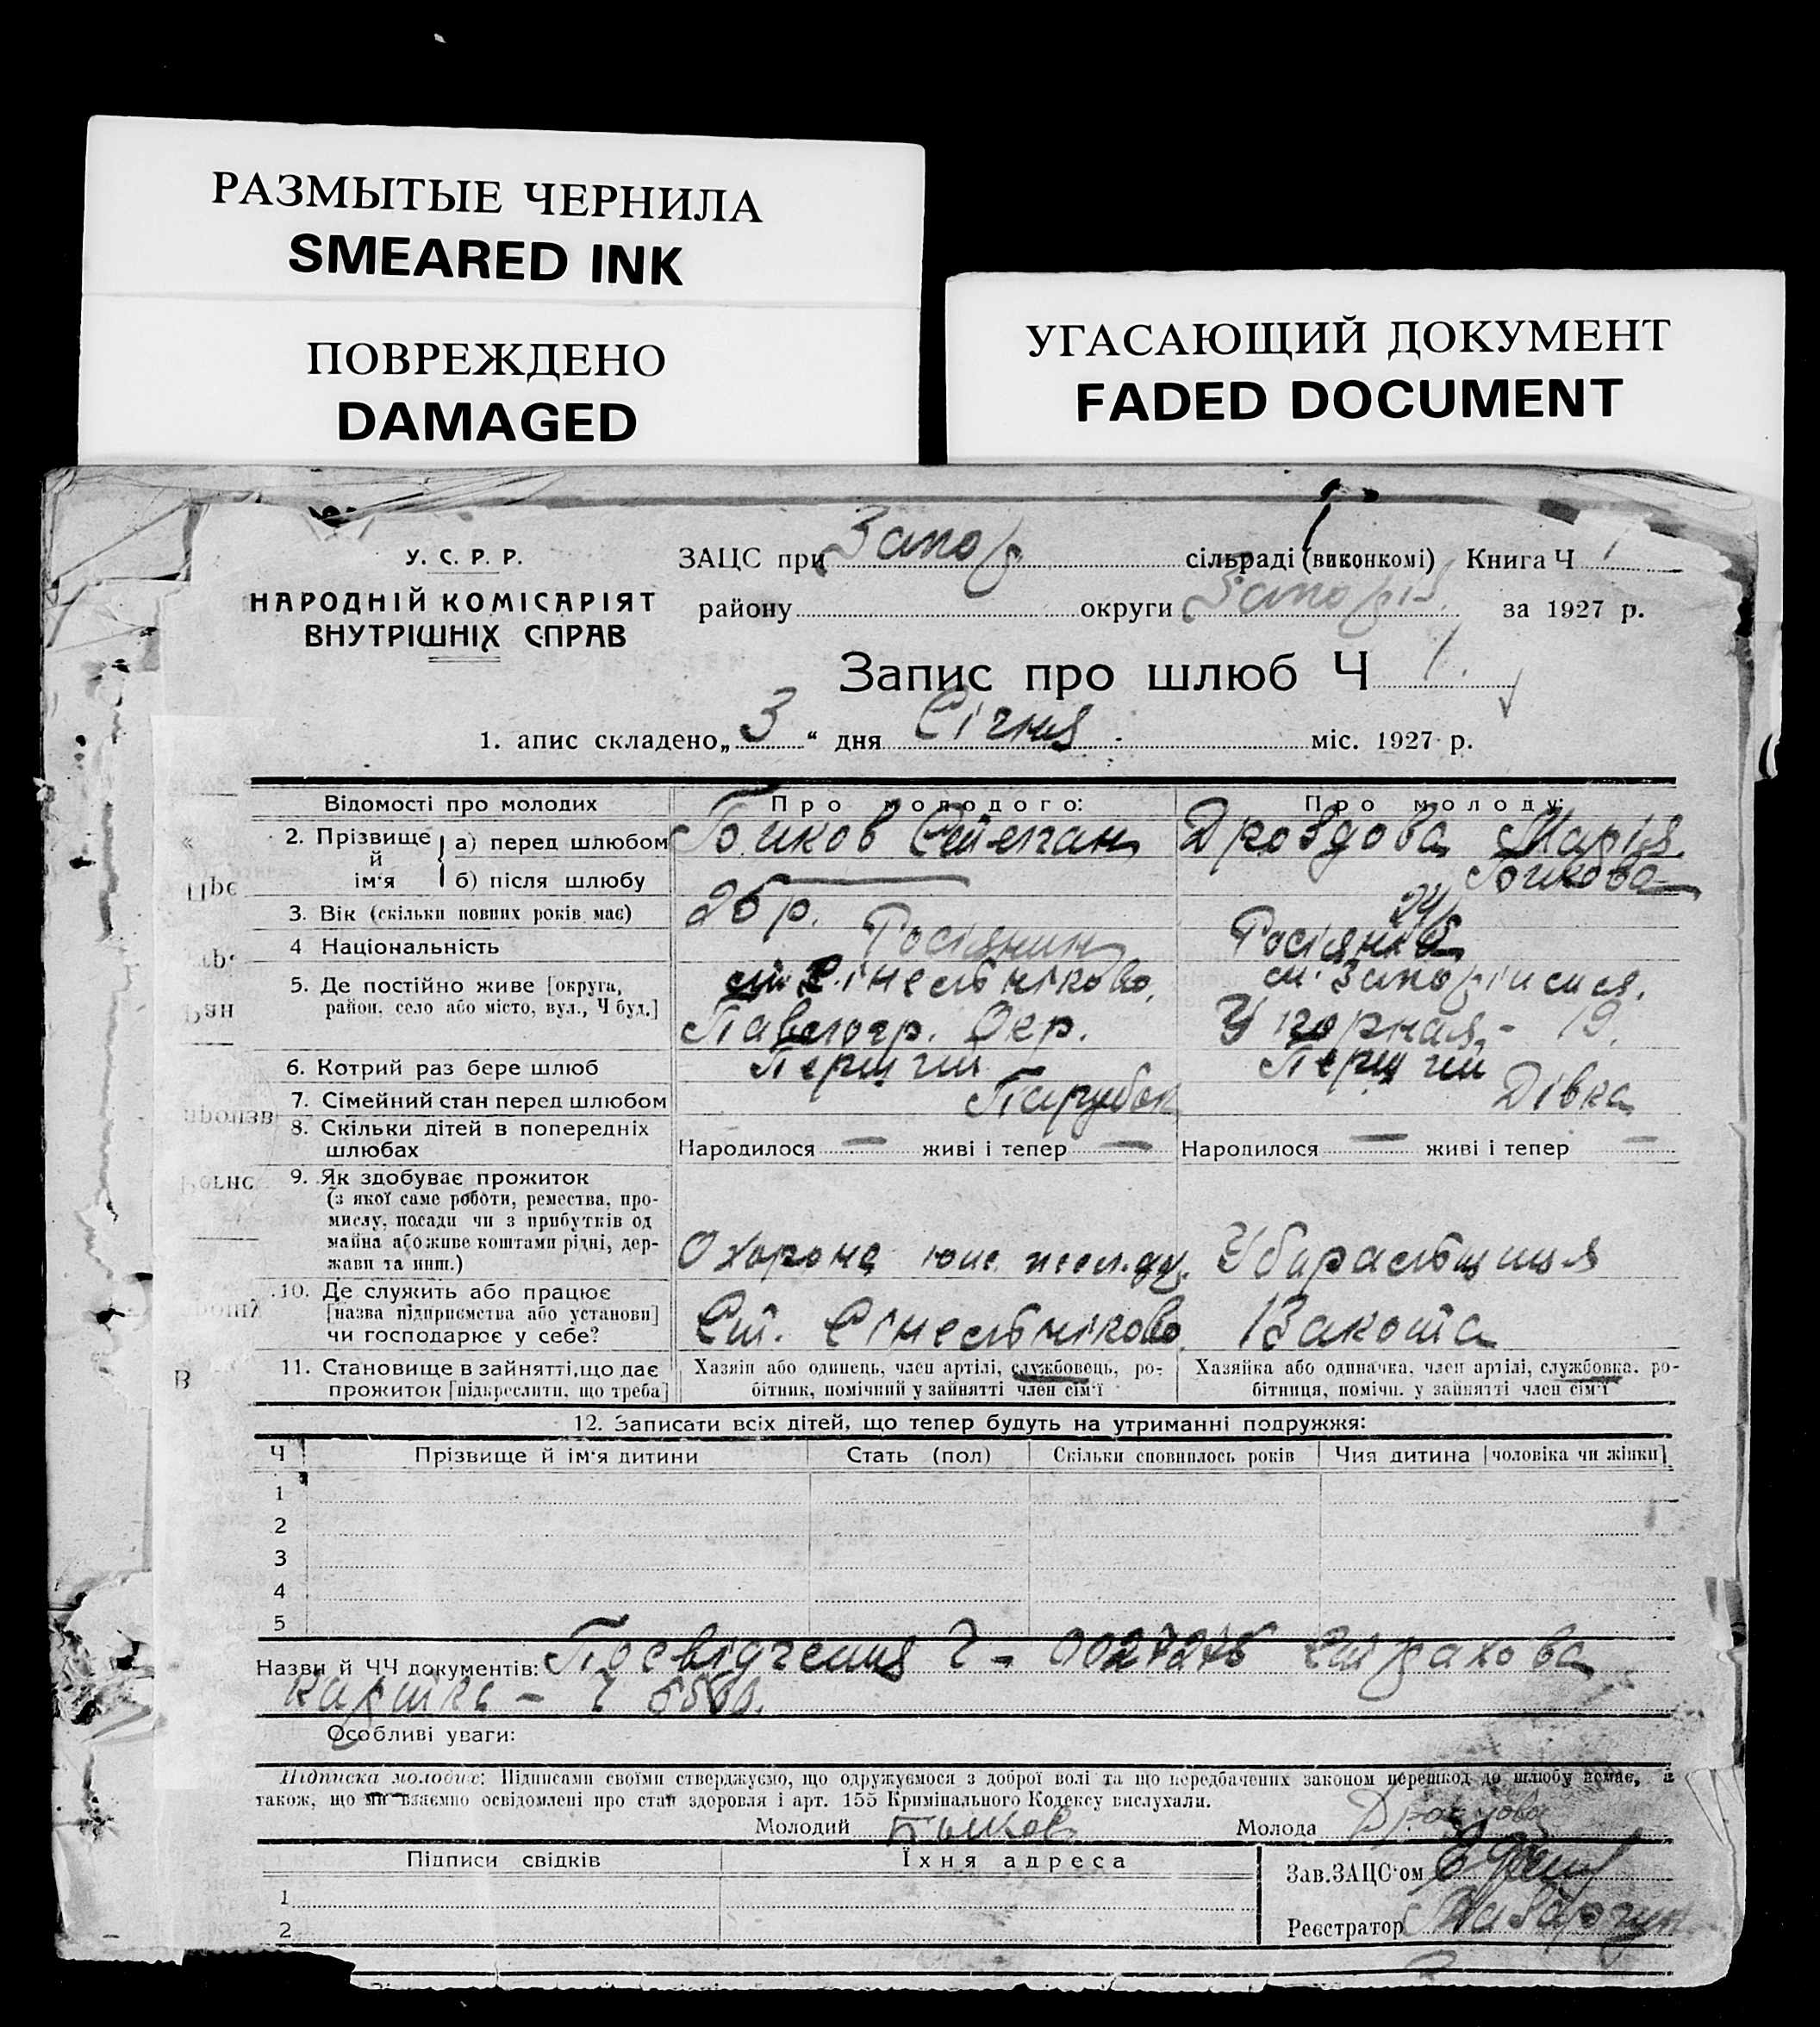 РАЗМЫТЫЕ ЧЕРНИЛА
SMEARED INK
ПОВРЕЖДЕНО
DAMAGED
УГАСАЮЩИЙ ДОКУМЕНТ
FADED DOCUMENT
У. С. Р. Р.
НАРОДНІЙ КОМІСАРІЯТ
ВНУТРІШНІХ СПРАВ
ЗАЦС при Запор сільраді (виконкомі) Книга Ч 1
району округи Запоріз. за 1927 р.
Запис про шлюб Ч 1.
1. апис складено „3“ дня Січня міс. 1927 р.
Відомості про молодих Про молодого: Про молоду:
2. Прізвище й ім'я а) перед шлюбом Бичков Степан Дроздова Марія
б) після шлюбу Бичкова
3. Вік (скільки повних років має) 26 р. 24
4 Національність Росіянин Росіянка
5. Де постійно живе [округа, ст. Сінельніково, м. Запоріжжя,
район, село або місто, вул., Ч буд.] Павлогр. Окр. 19.
6. Котрий раз бере шлюб Перший Перший
7. Сімейний стан перед шлюбом Парубок Дівка
8. Скільки дітей в попередніх
шлюбах Народилося — живі і тепер — Народилося — живі і тепер —
9. Як здобуває прожиток
(з якої саме роботи, ремества, про-
мислу, посади чи з прибутків од
майна або живе коштами рідні, дер-
жави та инш.) Охорона Убиральщиця
10. Де служить або працює
[назва підприємства або установи]
чи господарює у себе? Ст. Сінельніково
11. Становище в зайнятті, що дає Хазяїн або одинець, член артілі, службовець, ро- Хазяйка або одиначка, член артілі, службовка, ро-
прожиток [підкреслити, що треба] бітник, помічний у зайнятті член сім'ї бітниця, помічн. у зайнятті член сім'ї
12. Записати всіх дітей, що тепер будуть на утриманні подружжя:
Ч Прізвище й ім'я дитини Стать (пол) Скільки сповнилось років Чия дитина [чоловіка чи жінки]
1
2
3
4
5
Назви й ЧЧ документів: Посвідчення Ч – 0027276 Страхова
картка – Ч
Особливі уваги:
Підписка молодих: Підписами своїми стверджуємо, що одружуємося з доброї волі та що передбачених законом перешкод до шлюбу немає, а
також, що ми взаємно освідомлені про стан здоровля і арт. 155 Кримінального Кодексу вислухали.
Молодий Бичков Молода Дроздова
Підписи свідків Їхня адреса
Зав. ЗАЦС'ом
1
Реєстратор
2